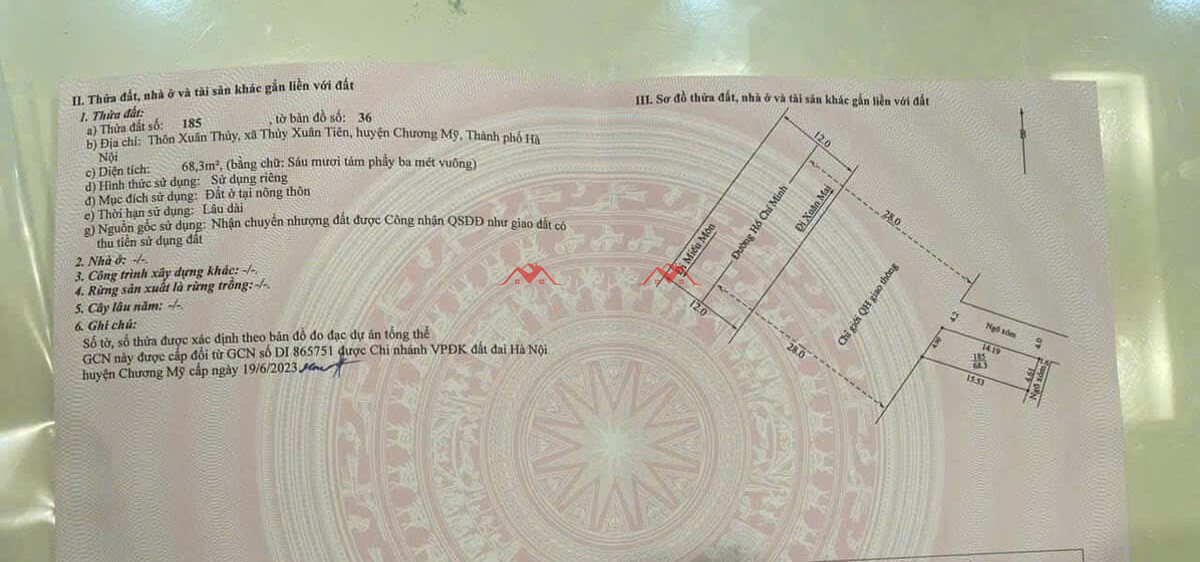 II. Thửa đất, nhà ở và tài sản khác gắn liền với đất
1. Thửa đất:
a) Thửa đất số: 185 , tờ bản đồ số: 36
b) Địa chỉ: Thôn Xuân Thủy, xã Thủy Xuân Tiên, huyện Chương Mỹ, Thành phố Hà
Nội
c) Diện tích: 68,3m², (bằng chữ: Sáu mươi tám phẩy ba mét vuông)
d) Hình thức sử dụng: Sử dụng riêng
đ) Mục đích sử dụng: Đất ở tại nông thôn
e) Thời hạn sử dụng: Lâu dài
g) Nguồn gốc sử dụng: Nhận chuyển nhượng đất được Công nhận QSDĐ như giao đất có
thu tiền sử dụng đất
2. Nhà ở: -/-.
3. Công trình xây dựng khác: -/-.
4. Rừng sản xuất là rừng trồng: -/-.
5. Cây lâu năm: -/-.
6. Ghi chú:
Số tờ, số thửa được xác định theo bản đồ đo đạc dự án tổng thể
GCN này được cấp đổi từ GCN số DI 865751 được Chi nhánh VPĐK đất đai Hà Nội
huyện Chương Mỹ cấp ngày 19/6/2023
III. Sơ đồ thửa đất, nhà ở và tài sản khác gắn liền với đất
B
12.0
Đi Miếu Môn
Đường Hồ Chí Minh
Đi Xuân Mai
28.0
12.0
28.0
Chỉ giới QH giao thông
4.2
Ngõ xóm
4.0
14.19
185
68.3
4.61
15.53
Ngõ xóm